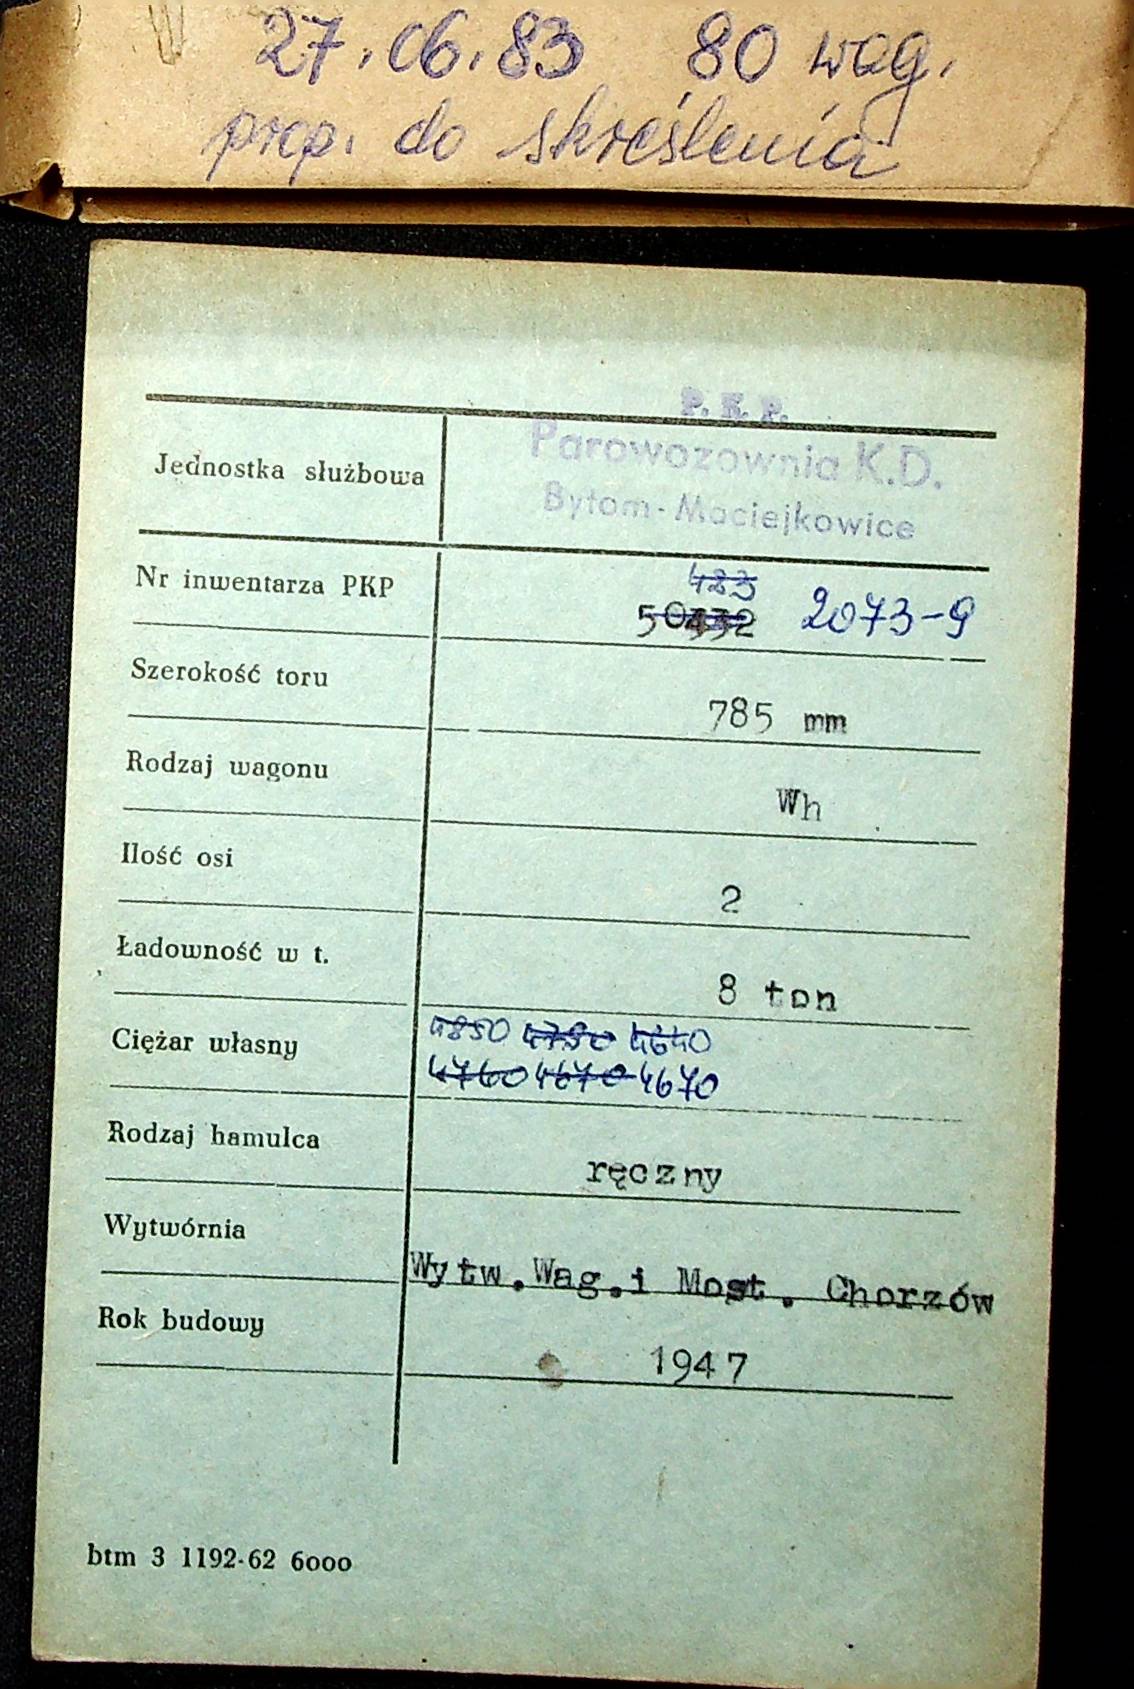 27.06.83 80 wag.
prop. do skreślenia
P. K. P.
Parowozownia K.D.
Bytom-Maciejkowice
Jednostka służbowa
Nr inwentarza PKP
483
50432 2073-9
Szerokość toru
785 mm
Rodzaj wagonu
Wh
Ilość osi
2
Ładowność w t.
8 ton
Ciężar własny
4850 4780 4640
4760 4670 4670
Rodzaj hamulca
ręczny
Wytwórnia
Wytw.Wag.i Most. Chorzów
Rok budowy
1947
btm 3 1192-62 6000